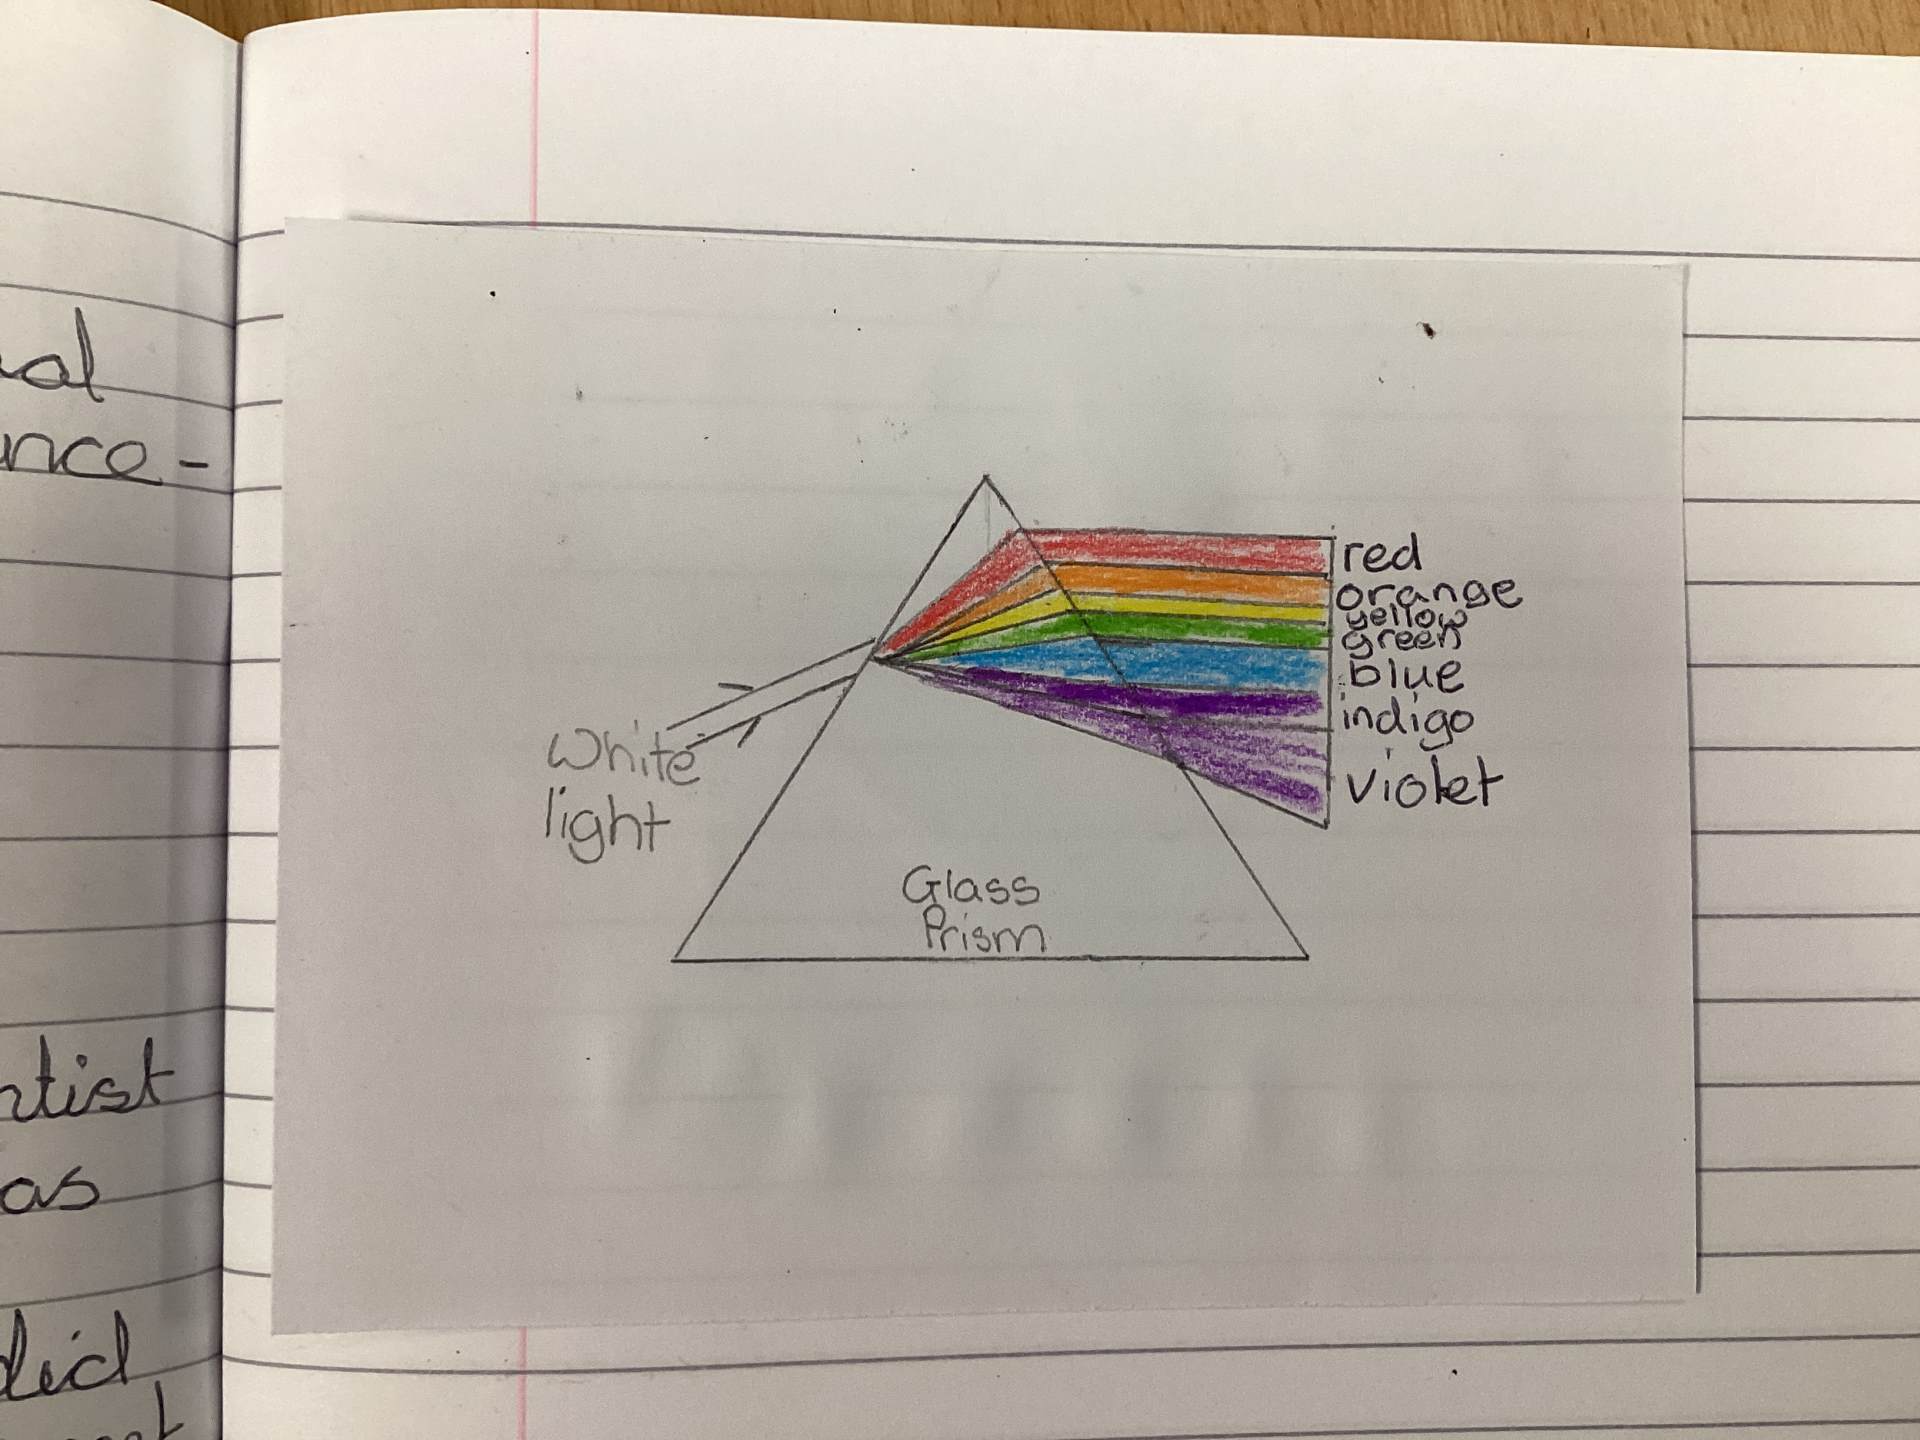 ance-
as
did
White
light
Glass
Prism
red
orange
yellow
green
blue
indigo
violet